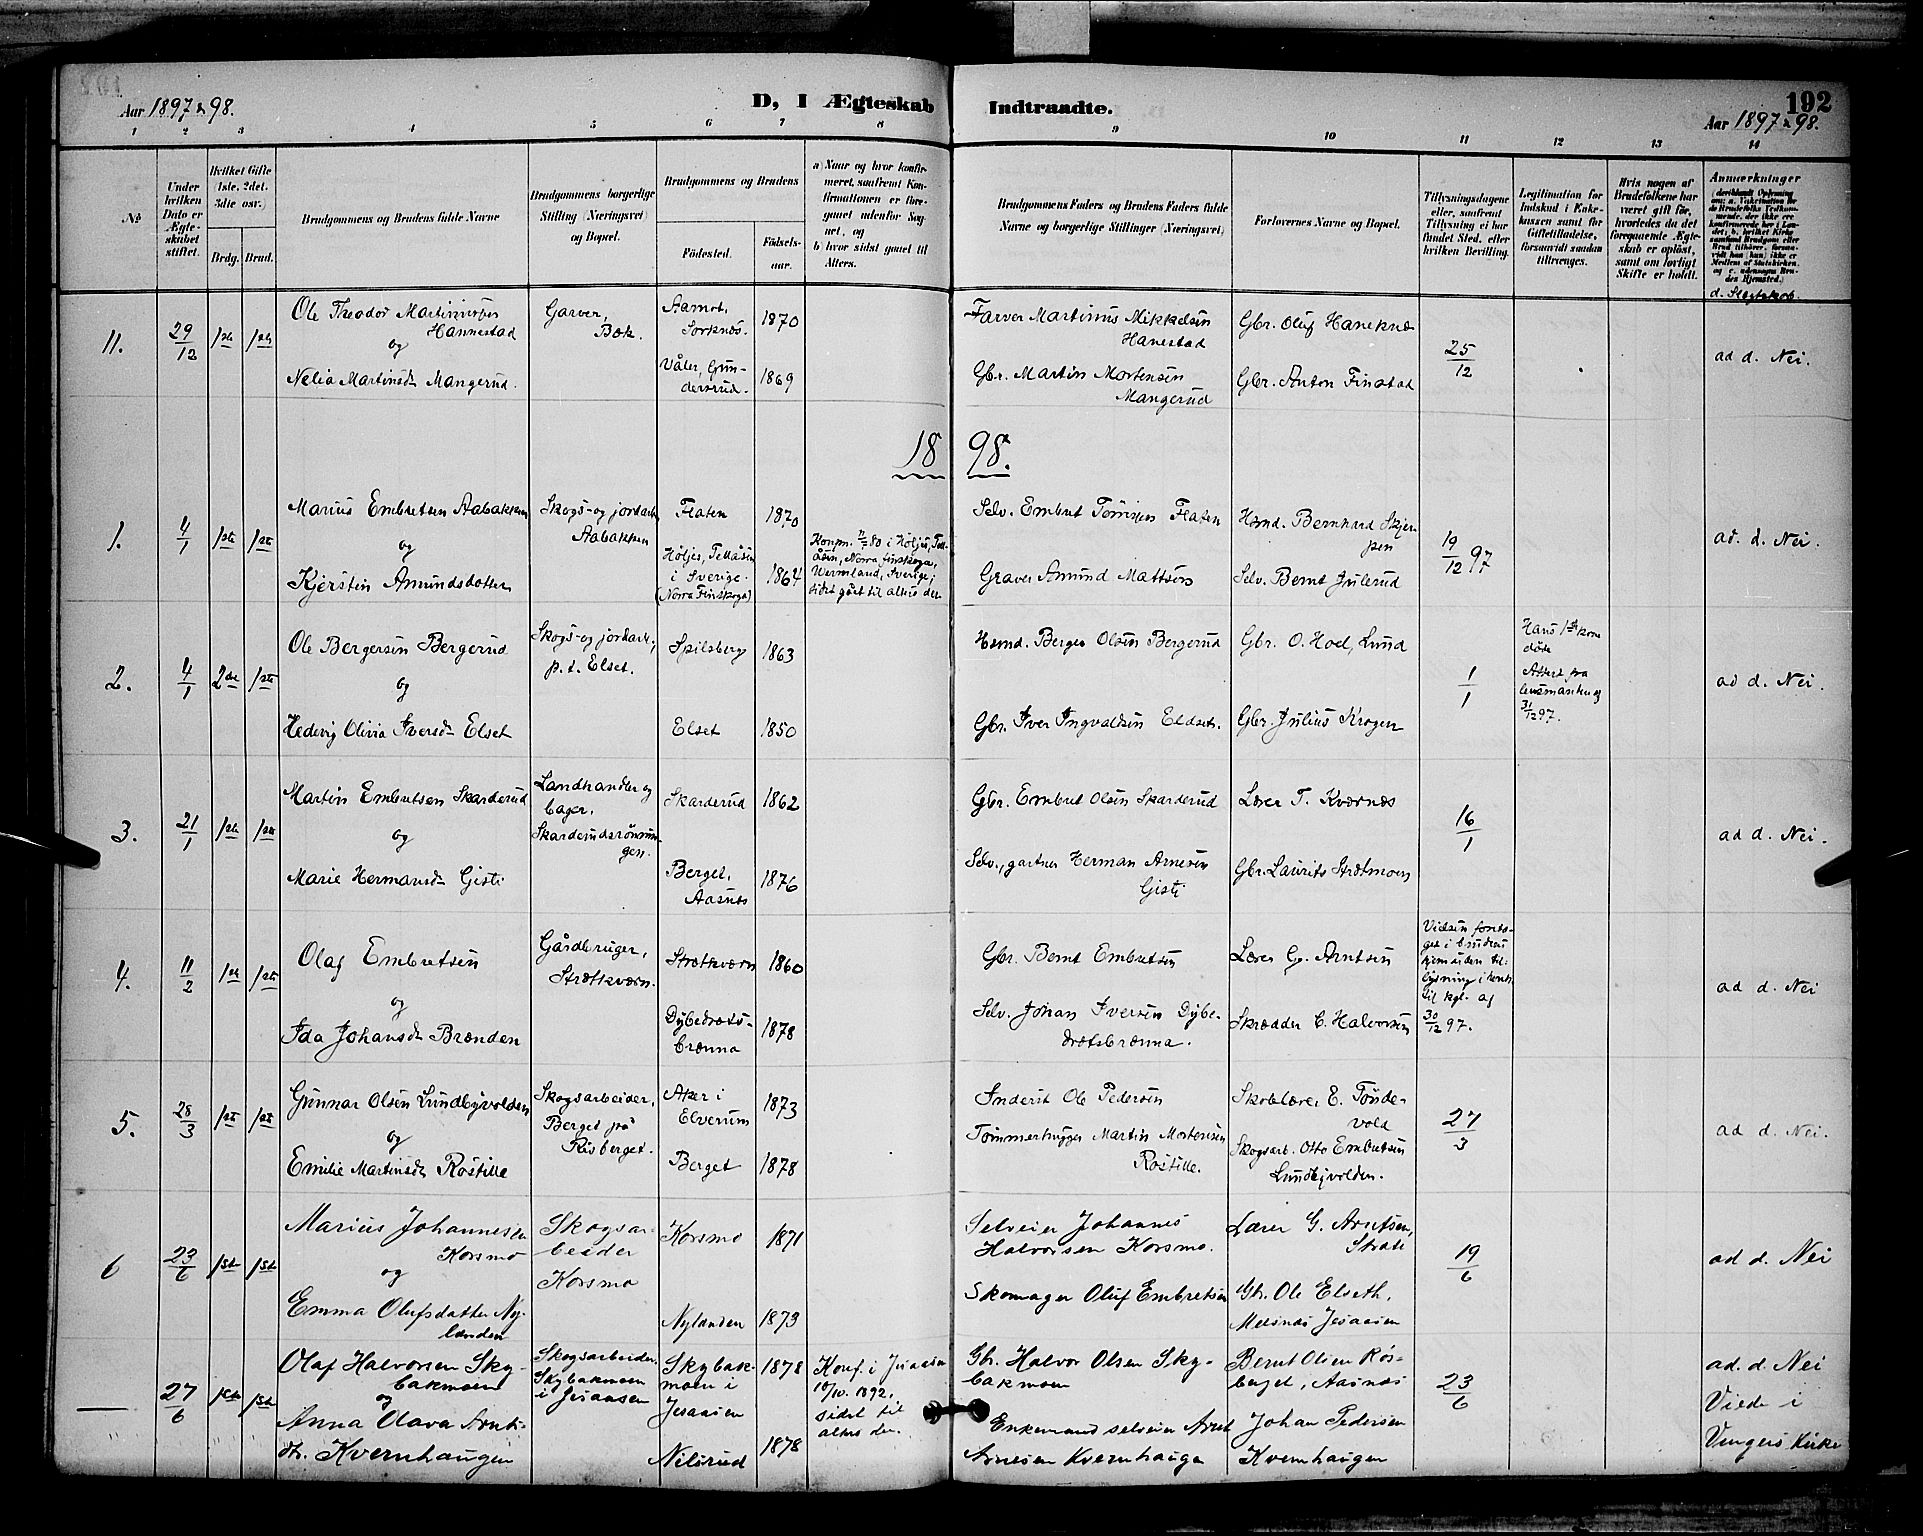 192
Aar 1897 & 98.
D, I Ægteskab Indtraadte.
Aar 1897 & 98.
1 2 3 4 5 6 7 8 9 10 11 12 13 14
No
Under hvilken Dato er Ægteskabet stiftet.
Hvilket Gifte (1ste, 2det, 3die osv.)
Brdg. Brud.
Brudgommens og Brudens fulde Navne
Brudgommens borgerlige Stilling (Næringsvei) og Bopæl.
Brudgommens og Brudens
Fødested. Fødselsaar.
a) Naar og hvor konfirmeret, saafremt Konfirmationen er foregaaet udenfor Sognet, og
b) hvor sidst gaaet til Alters.
Brudgommens Faders og Brudens Faders fulde Navne og borgerlige Stillinger (Næringsvei)
Forlovernes Navne og Bopæl.
Tillysningsdagene eller, saafremt Tillysning ei har fundet Sted, efter hvilken Bevilling.
Legitimation for Indskud i Enkekassen samt for Giftetilladelse, forsaavidt saadan tiltrænges.
Hvis nogen af Brudefolkene har været gift før, hvorledes da det foregaaende Ægteskab er opløst, samt om lovligt Skifte er holdt.
Anmærkninger
d. Slegtskab.
11.
29/12
1ste 1ste
Ole Theodor Martiniusen
Hannestad
og
Nelia Martinsdr Mangerud.
Garver,
Bæk.
Aamot,
Sorknæs.
1870
Våler, Gun-
dersrud.
1869
Farver Martinus Mikkelsen
Hanestad
Gbr. Martin Mortensen
Mangerud
Gbr. Oluf Haneknæ
Gbr. Anton Finstad
25/12
ad d. Nei.
18 98.
1.
4/1
1ste 1ste
Marius Embretsen Aabakken
og
Kjerstin Amundsdotter
Skogs- og jordarb.
Aabakken
Flaten
1870
Höljes, Tellåsen
i Sverige.
(Norra Finskoga)
1864
i Höljes, Tell-
åsen, Norra finskoga,
Wermland, Sverige;
sidst gået til alters der
Selv. Embret Flaten
Graver Amund Mattsson
Hsmd. Bernhard Skjær-
pen
Selv. Bernt Julerud
19/12 97
ad. d. Nei.
2.
4/1
2de 1ste
Ole Bergersen Bergerud
og
Hedvig Olivia Iversdr Elset
Skogs- og jordarb.,
p. t. Elset.
Spilsberg
1863
Elset
1850
Hsmd. Berger Olsen Bergerud
Gbr. Iver Ingvaldsen Eldset.
Gbr. O. Hoel, Lund
Gbr. Julius Krogen
1/1
Hans 1ste kone
døde
Attest fra
lensmanden af
31/12 97.
ad d. Nei.
3.
21/1
1ste 1ste
Martin Embretsen Skarderud
og
Marie Hermansdr Gisti
Landhandler og
bager,
Skarderudsrønnin-
gen.
Skarderud
1862
Berget,
Aasnes
1876
Gbr. Embret Olsen Skarderud
Selv., gartner Herman Arnesen
Gisti
Lærer T. Kværnæs
Gbr. Laurits Strætmoen
16/1
ad d. Nei.
4.
11/2
1ste 1ste
Olaf Embretsen
og
Ida Johansdr Brænden
Gårdbruger,
Strætkværn.
Strætkværn
1860
Dybedræts-
brænna
1878
Gbr. Bernt Embretsen
Selv. Johan Iversen Dybe-
drætsbrænna.
Lærer G. Arntsen
Skrædder C. Halvorsen
Vielsen foreta-
get i brudens
hjem uden til-
lysning i henh.
til kgl. af
30/12 97.
ad d. Nei
5.
28/3
1ste 1ste
Gunnar Olsen Lundbyvolden
og
Emilie Martinsdr Rostille
Skogsarbeider,
Berget på
Risberget.
Aker i
Elverum
1873
Berget
1878
Inderst Ole Pedersen
Tømmerhugger Martin Mortensen
Rostille.
Skolelærer E. Tønde-
vold
Skogsarb. Otto Embretsen
Lundbyvolden.
27/3
ad d. Nei.
6
23/6
1ste 1ste
Marius Johannesen
Korsmo
og
Emma Olufsdatter Ny-
lænden
Skogsar-
beider
Korsmo
Korsmo
1871
Nylænden
1873
Selveier Johannes
Halvorsen Korsmo.
Skomager Oluf Embretsen
Lærer G. Arntsen,
Stræte
Gbr. Ole Elseth,
Melsnes Jesaasen
19/6
ad d. Nei
—
27/6
1ste 1ste
Olaf Halvorsen Sky-
bakmoen
og
Anna Olava Arnts-
dr. Kvernhaugen
Skogsarbeider.
Skybakmoen
i Jesaasen
Skybak-
moen i
Jesaasen
1878
Nilsrud
1878
Konf. i Jesaasen
10. 1892,
sidst til
alters der.
Gbr. Halvor Olsen Sky-
bakmoen
Enkemand selveier Arnt
Arnesen Kvernhaugen
Bernt Olsen Røs-
baget, Aasnæs
Johan Pedersen
Kvernhaugen
23/6
ad. d. Nei
Viede i
Vingers Kirke